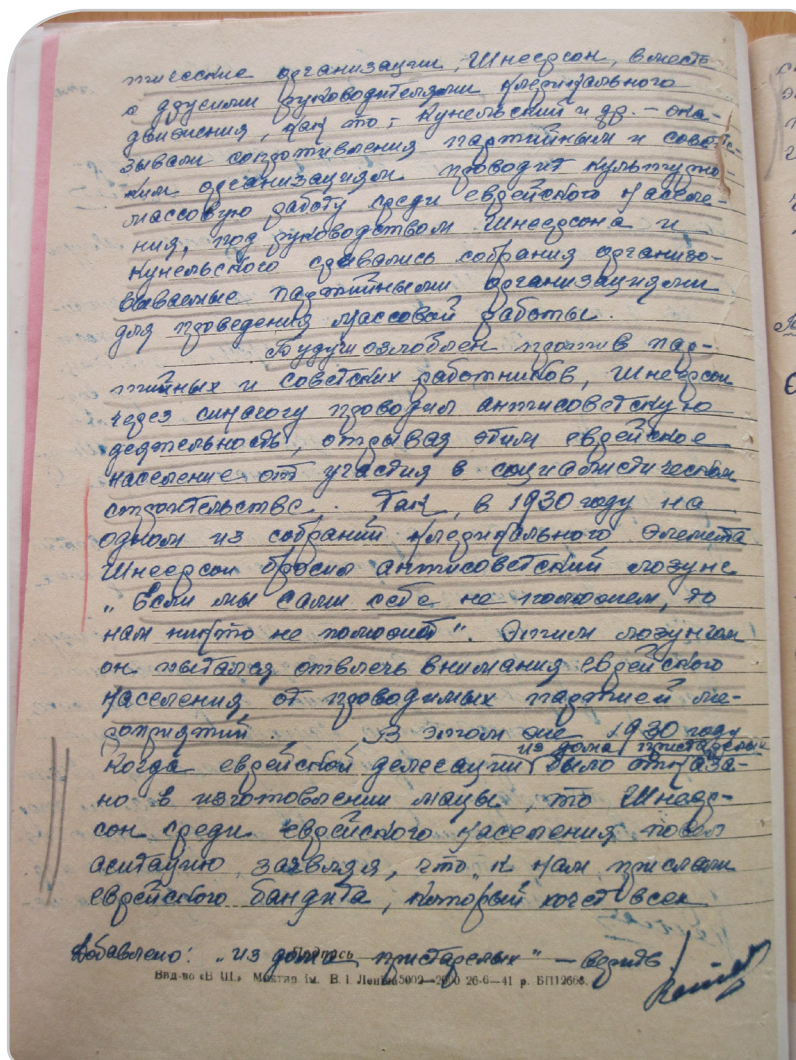 тические организации, Шнеерсон, вместе
с другими руководителями клерикального
движения, как то: Кунельский и др. – ока-
зывали сопротивления партийным и советс-
ким организациям проводит культурно-
массовую работу среди еврейского населе-
ния, под руководством Шнеерсона и
Кунельского срывались собрания организо-
вываемые партийными организациями
для проведения массовой работы.
Будучи озлоблен против пар-
тийных и советских работников, Шнеерсон
через синагогу проводил антисоветскую
деятельность, отрывая этим еврейское
население от участия в социалистическом
строительстве. Так, в 1930 году на
одном из собраний клерикального элемента
Шнеерсон бросил антисоветский лозунг
„Если мы сами себе не поможем, то
нам никто не поможет". Этим лозунгом
он пытался отвлечь внимания еврейского
населения от проводимых партией ме-
роприятий. В этом же 1930 году
из дома пристарелых
когда еврейской делегации было отказа-
но в изготовлении мацы, то Шнеер-
сон среди еврейского населения повел
агитацию, заявляя, что „к нам прислали
еврейского бандита, который хочет всех
Добавлено: „из дома пристарелых" – верить
Подпись
Вид-во «В Ш.» Мокгиз ім. В. І. Леніна 5009—2000 26-6—41 р. БП12668.